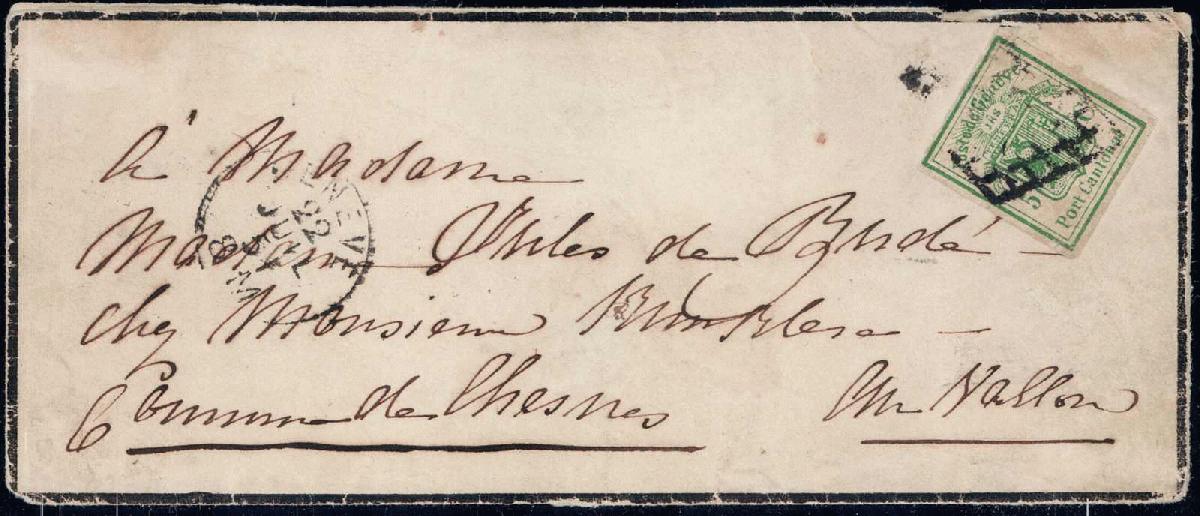 à Madame
Madame Jules de Budé
chez Monsieur
Commune de Chesnes Au Vallon
GENEVE
22
JUIL
Poste de Genève
5 C
Port Cantonal